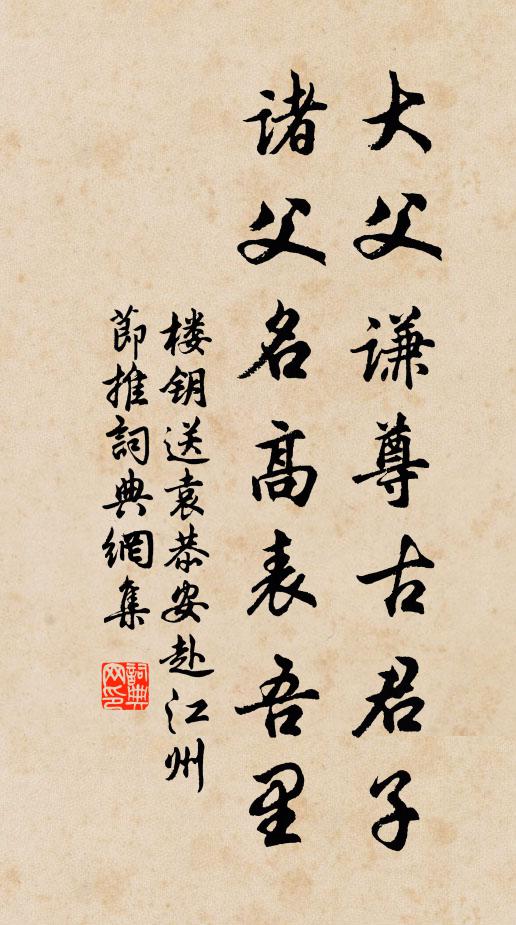 大父谦尊古君子
诸父名高表吾里
楼钥送袁恭安赴江州
節推詞典網集
詞典网印